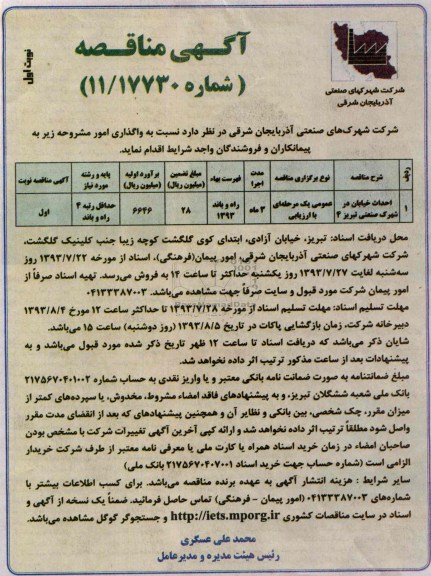 آگهی مناقصه
نوبت اول
(شماره ۱۱/۱۷۷۳۰)
شرکت شهرکهای صنعتی
آذربایجان شرقی
شرکت شهرک‌های صنعتی آذربایجان شرقی در نظر دارد نسبت به واگذاری امور مشروحه زیر به
پیمانکاران و فروشندگان واجد شرایط اقدام نماید.
ردیف | شرح مناقصه | نوع برگزاری مناقصه | مدت اجرا | فهرست بهاء | مبلغ تضمین (میلیون ریال) | برآورد اولیه (میلیون ریال) | پایه و رشته مورد نیاز | آگهی مناقصه نوبت
۱ | احداث خیابان در شهرک صنعتی تبریز ۴ | عمومی یک مرحله‌ای با ارزیابی | ۳ ماه | راه و باند ۱۳۹۳ | ۲۸ | ۶۶۴۶ | حداقل رتبه ۴ راه و باند | اول
محل دریافت اسناد: تبریز، خیابان آزادی، ابتدای کوی گلگشت کوچه زیبا جنب کلینیک گلگشت،
شرکت شهرکهای صنعتی آذربایجان شرقی، امور پیمان(فرهنگی)، اسناد از مورخه ۱۳۹۳/۷/۲۲ روز
سه‌شنبه لغایت ۱۳۹۳/۷/۲۷ روز یکشنبه حداکثر تا ساعت ۱۴ به فروش می‌رسد. تهیه اسناد صرفاً از
امور پیمان شرکت مورد قبول و سایت صرفاً جهت مشاهده می‌باشد. ۰۴۱۳۳۳۸۷۰۰۳
مهلت تسلیم اسناد: مهلت تسلیم اسناد از مورخه ۱۳۹۳/۷/۲۸ تا حداکثر ساعت ۱۲ مورخ ۱۳۹۳/۸/۴
دبیرخانه شرکت، زمان بازگشایی پاکات در تاریخ ۱۳۹۳/۸/۵ (روز دوشنبه) ساعت ۱۵ می‌باشد.
شایان ذکر می‌باشد که دریافت اسناد تا ساعت ۱۲ ظهر تاریخ ذکر شده مورد قبول می‌باشد و به
پیشنهادات بعد از ساعت مذکور ترتیب اثر داده نخواهد شد.
مبلغ ضمانتنامه به صورت ضمانت نامه بانکی معتبر و یا واریز نقدی به حساب شماره ۲۱۷۵۶۷۰۴۰۱۰۰۲
بانک ملی شعبه ششگلان تبریز، و به پیشنهادهای فاقد امضاء مشروط، مخدوش، یا سپرده‌های کمتر از
میزان مقرر، چک شخصی، بین بانکی و نظایر آن و همچنین پیشنهادهای که بعد از انقضای مدت مقرر
واصل شود مطلقاً ترتیب اثر داده نخواهد شد و ارائه کپی آخرین آگهی تغییرات شرکت با مشخص بودن
صاحبان امضاء در زمان خرید اسناد همراه یا کارت ملی یا معرفی نامه معتبر از طرف شرکت خریدار
الزامی است (شماره حساب جهت خرید اسناد ۲۱۷۵۶۷۰۴۰۷۰۰۱ بانک ملی)
سایر شرایط : هزینه انتشار آگهی به عهده برنده مناقصه می‌باشد. برای کسب اطلاعات بیشتر با
شماره‌های ۰۴۱۳۳۳۸۷۰۰۳ (امور پیمان - فرهنگی) تماس حاصل فرمائید. ضمناً یک نسخه از آگهی و
اسناد در سایت مناقصات کشوری http://iets.mporg.ir و جستجوگر گوگل مشاهده می‌باشد.
محمد علی عسگری
رئیس هیئت مدیره و مدیرعامل